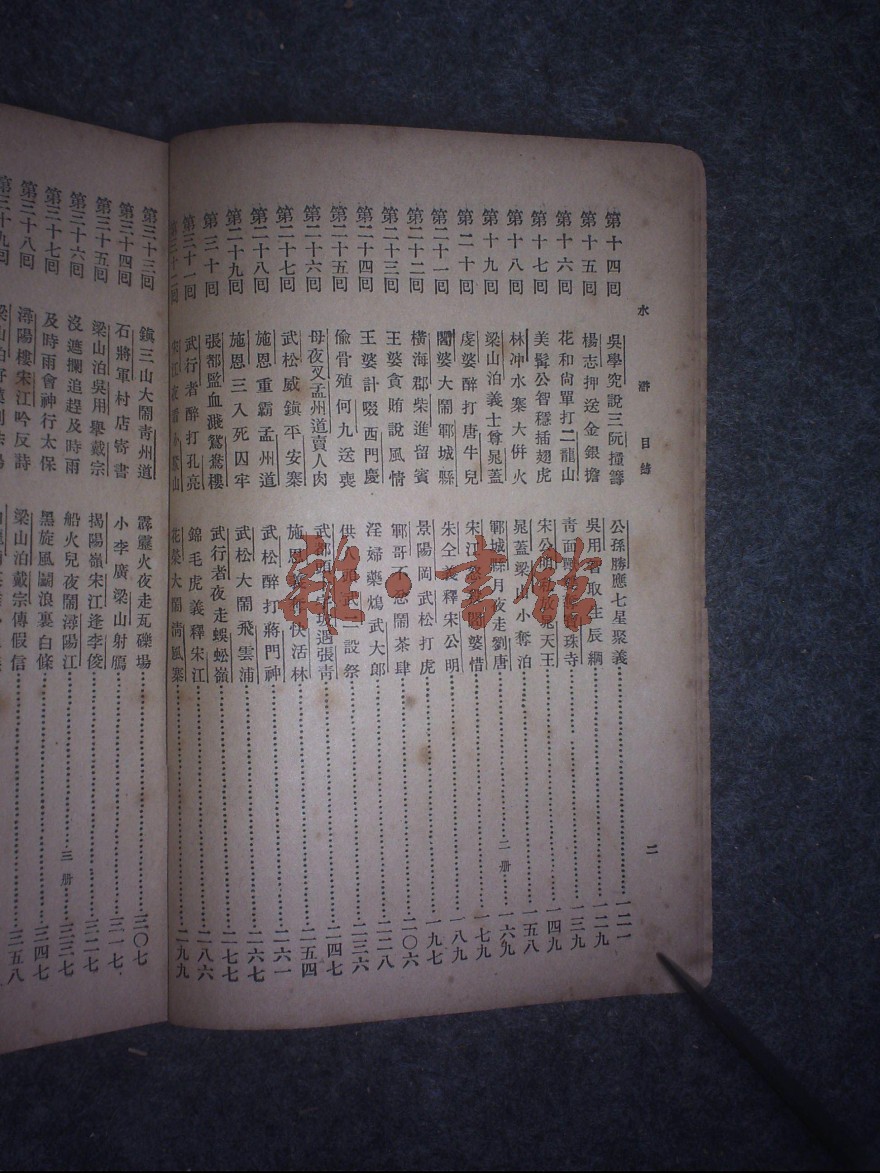 水滸 目錄
二
第十四回 吳學究說三阮撞籌 公孫勝應七星聚義 一二一
第十五回 楊志押送金銀擔 吳用智取生辰綱 一二九
第十六回 花和尙單打二龍山 靑面獸 珠寺 一三九
第十七回 美髯公智穩插翅虎 宋公明 天王 一四九
第十八回 林冲水寨大併火 晁蓋梁山小奪泊 一五八
第十九回 梁山泊義士尊晁蓋 鄆城縣月夜走劉唐 二册 一六九
第二十回 虔婆醉打唐牛兒 宋江 婆惜 一七九
第二十一回 閻婆大鬧鄆城縣 朱仝義釋宋公明 一八九
第二十二回 橫海郡柴進留賓 景陽岡武松打虎 一九七
第二十三回 王婆貪賄說風情 鄆哥不忿鬧茶肆 二〇六
第二十四回 王婆計啜西門慶 淫婦藥鴆武大郎 二二八
第二十五回 偸骨殖何九送喪 供人頭武二設祭 二三六
第二十六回 母夜叉孟州道賣人肉 武都頭十字坡遇張靑 二四七
第二十七回 武松威鎭平安寨 施恩義 快活林 二五四
第二十八回 施恩重霸孟州道 武松醉打蔣門神 二六一
第二十九回 施恩三入死囚牢 武松大鬧飛雲浦 二六七
第三十回 張都監血濺鴛鴦樓 武行者夜走蜈蚣嶺 二七七
第三十一回 武行者醉打孔亮 錦毛虎義釋宋江 二八六
第三十二回 宋江夜看小鰲山 花榮大鬧淸風寨 二九九
第三十三回 鎭三山大鬧靑州道 霹靂火夜走瓦礫場 三〇七
第三十四回 石將軍村店寄書 小李廣梁山射鴈 三一七
第三十五回 梁山泊吳用舉戴宗 揭陽嶺宋江逢李俊 三二七
第三十六回 沒遮攔追趕及時雨 船火兒夜鬧潯陽江 三册 三三七
第三十七回 及時雨會神行太保 黑旋風鬭浪裏白條 三四七
第三十八回 潯陽樓宋江吟反詩 梁山泊戴宗傳假信 三五八
第三十九回 梁山泊好漢劫
雜·書館